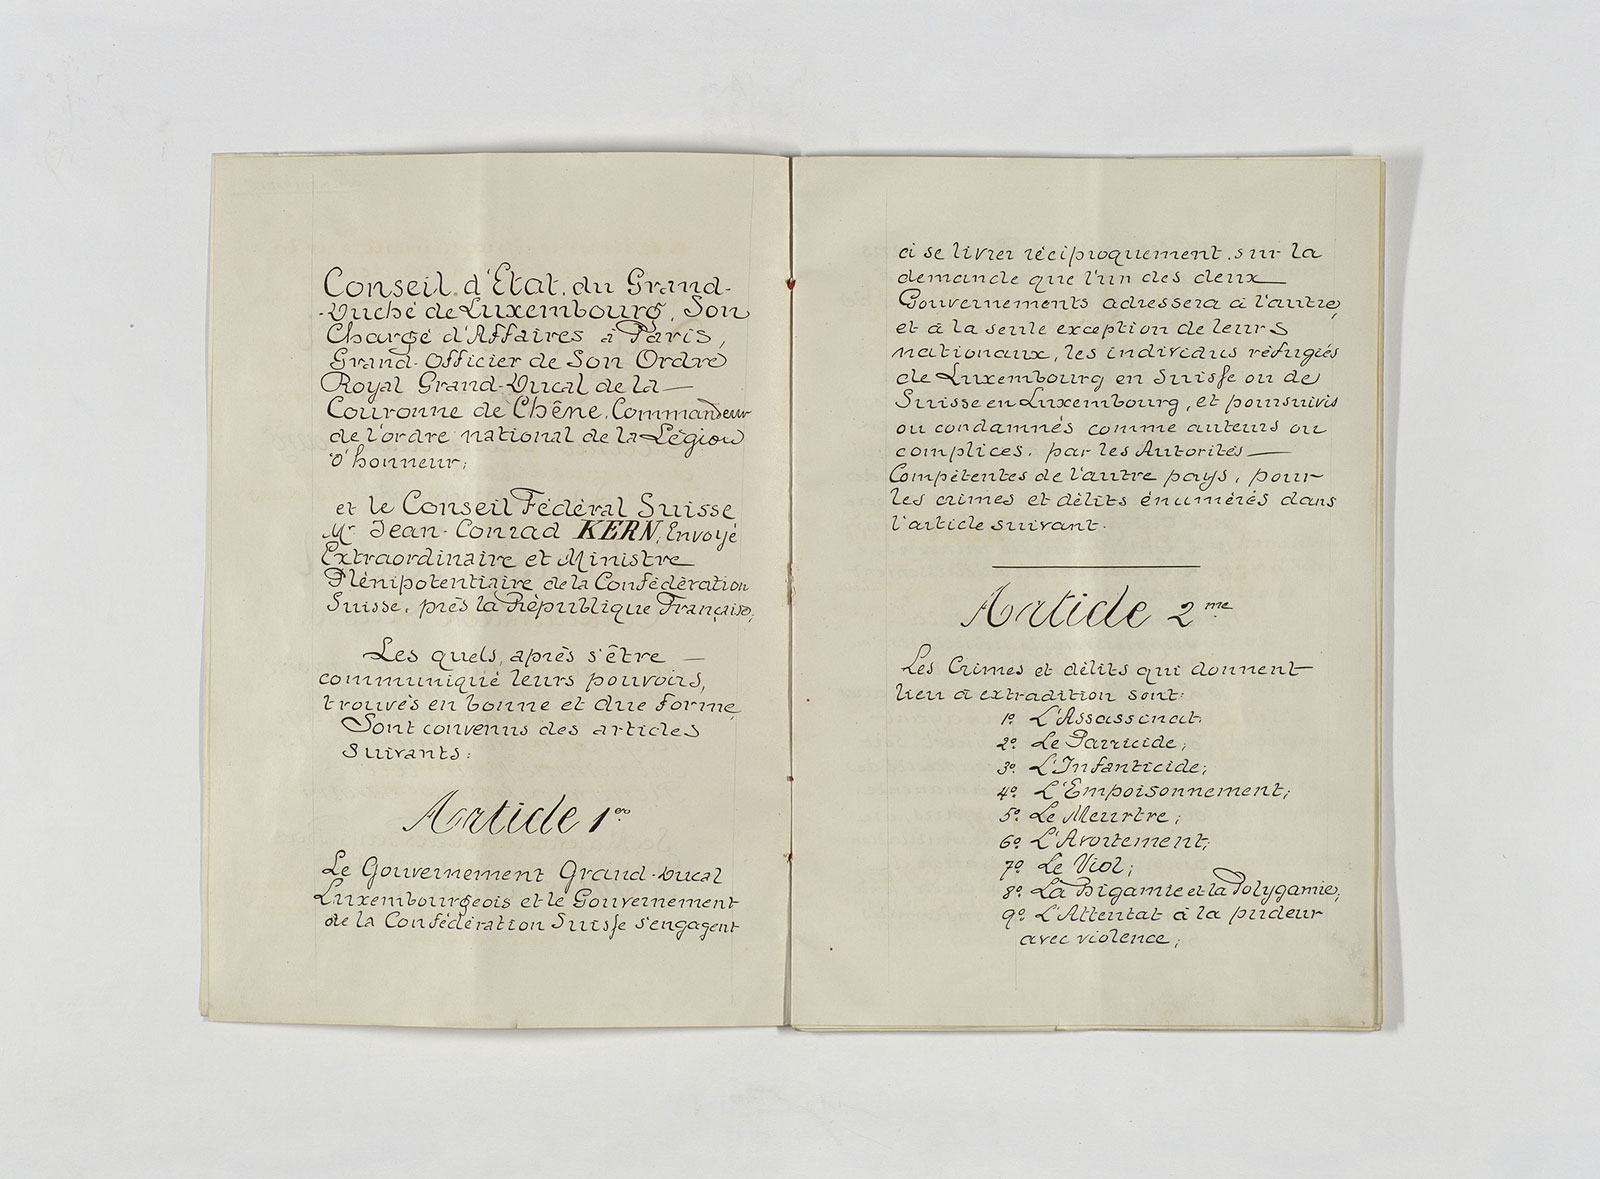 Conseil d'État du Grand-
-Duché de Luxembourg, Son
Chargé d'Affaires à Paris,
Grand-Officier de Son Ordre
Royal Grand-Ducal de la —
Couronne de Chêne, Commandeur
de l'ordre national de la Légion
d'honneur;
et le Conseil Fédéral Suisse
Mr. Jean-Conrad KERN, Envoyé
Extraordinaire et Ministre
Plénipotentiaire de la Confédération
Suisse, près la République Française;
Les quels, après s'être —
communiqué leurs pouvoirs,
trouvés en bonne et due forme,
Sont convenus des articles
suivants:
Article 1er
Le Gouvernement Grand-Ducal
Luxembourgeois et le Gouvernement
de la Confédération Suisse s'engagent
à se livrer réciproquement, sur la
demande que l'un des deux —
Gouvernements adressera à l'autre,
et à la seule exception de leurs
nationaux, les individus réfugiés
de Luxembourg en Suisse ou de
Suisse en Luxembourg, et poursuivis
ou condamnés comme auteurs ou
complices, par les Autorités —
Compétentes de l'autre pays, pour
les crimes et délits énumérés dans
l'article suivant.
Article 2me
Les Crimes et délits qui donnent
lieu à extradition sont:
1º L'Assassinat;
2º Le Parricide;
3º L'Infanticide;
4º L'Empoisonnement;
5º Le Meurtre;
6º L'Avortement;
7º Le Viol;
8º La Bigamie et la Polygamie;
9º L'Attentat à la pudeur
avec violence;